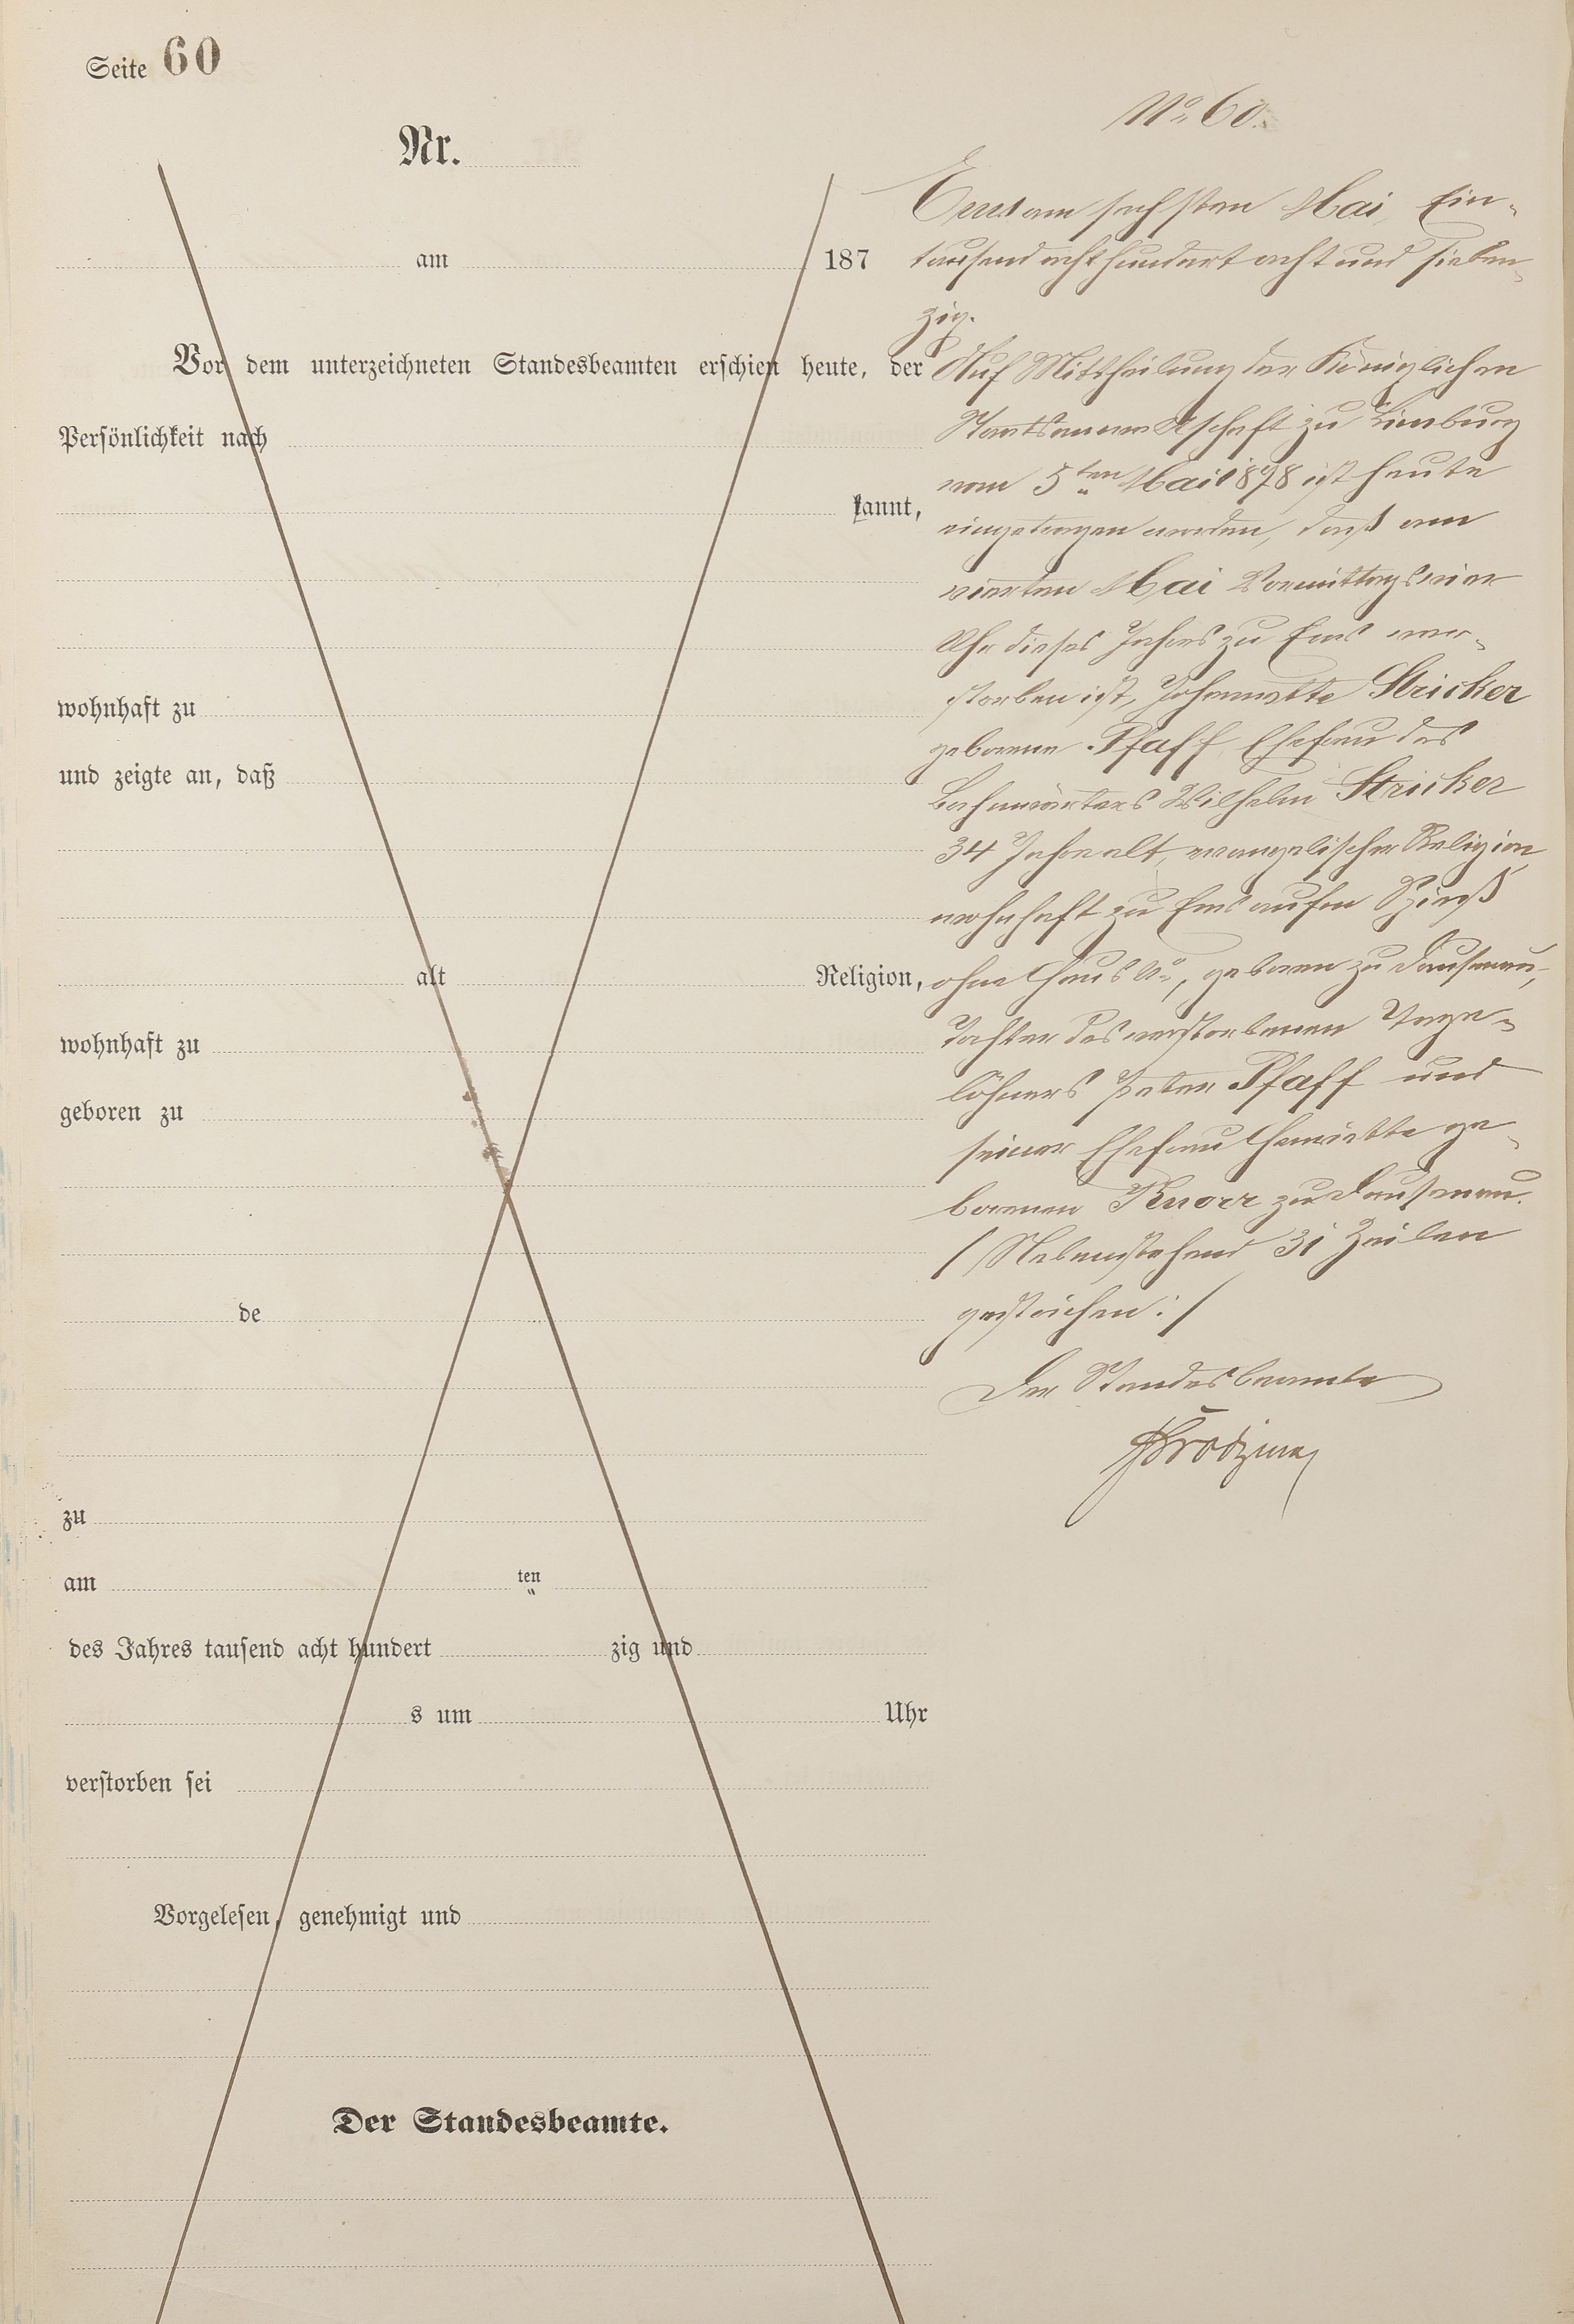 Seite 60
Nr.
am 187
Vor dem unterzeichneten Standesbeamten erschien heute, der
Persönlichkeit nach
kannt,
wohnhaft zu
und zeigte an, daß
alt Religion,
wohnhaft zu
geboren zu
de
zu
am ten
des Jahres tausend acht hundert zig und
s um Uhr
verstorben sei
Vorgelesen, genehmigt und
Der Standesbeamte.
No 60.
Ems am sechsten Mai, Ein-
tausend acht hundert acht und sieben-
zig.
Auf Mittheilung der Königlichen
Staatsanwaltschaft zu Limburg
vom 5ten Mai 1878 ist heute
eingetragen worden, daß am
vierten Mai Vormittags vier
Uhr dieses Jahres zu Ems ver-
storben ist, Johannette Stricker
geborene Pfaff, Ehefrau des
Bahnwärters Wilhelm Stricker
34 Jahre alt, evangelischer Religion,
wohnhaft zu Ems auf'm
ohne Haus No, geboren zu Dausenau,
Tochter des verstorbenen Tage-
löhners Peter Pfaff und
seiner Ehefrau Henriette ge-
borenen Knorr zu Dausenau.
/ Nebenstehend 31 Zeilen
gestrichen: /
Der Standesbeamte